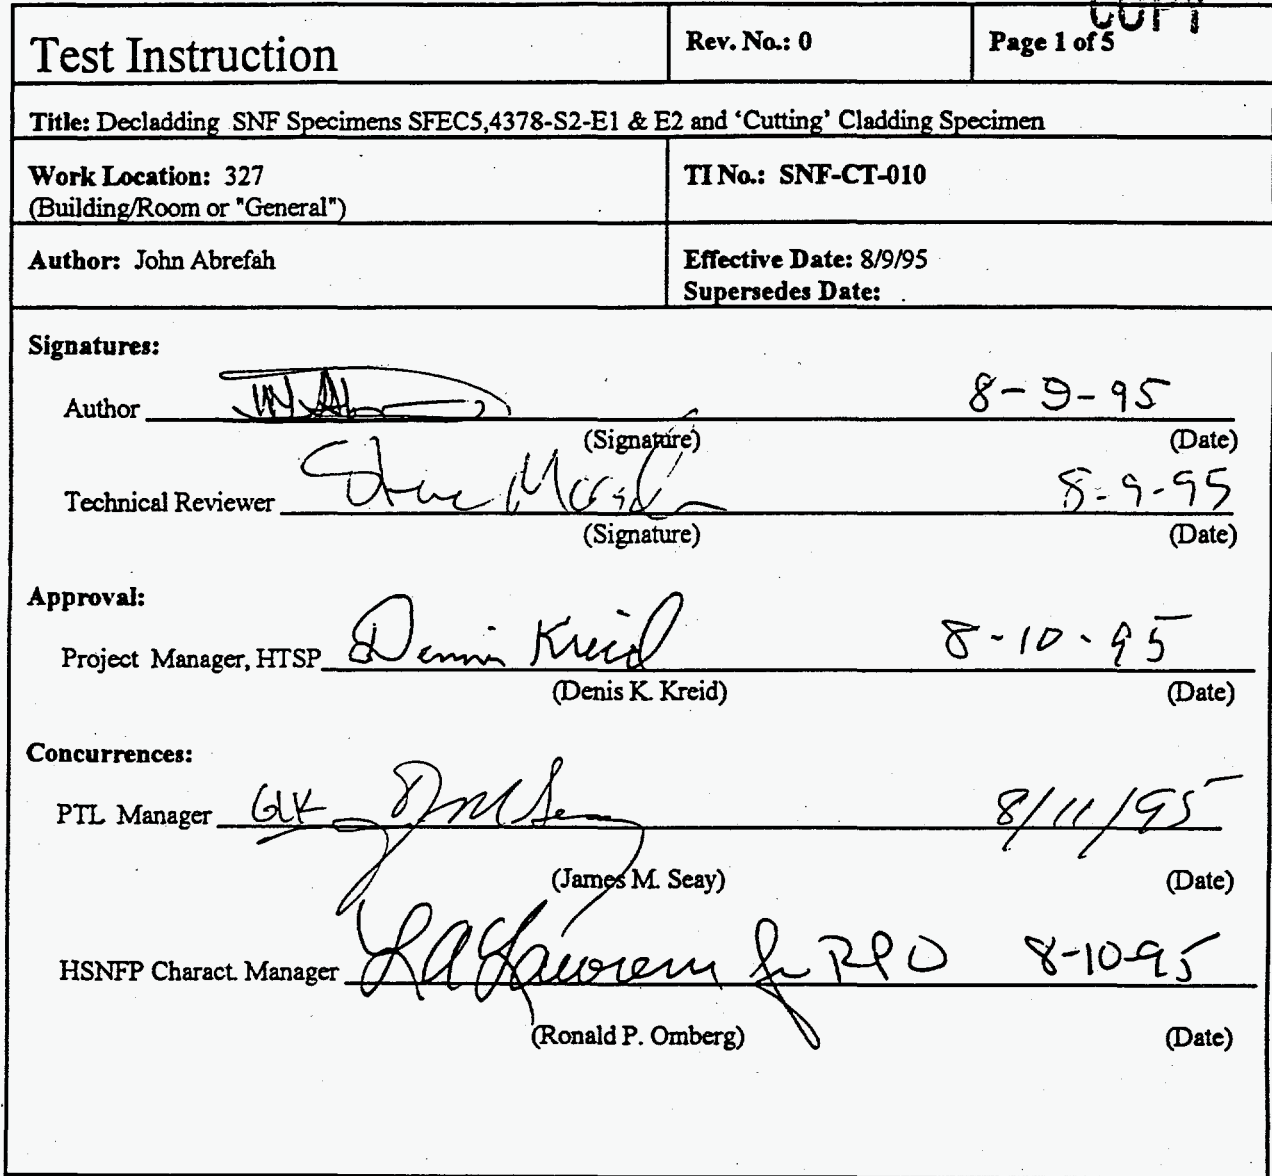 COPY
Test Instruction
Rev. No.: 0
Page 1 of 5
Title: Decladding SNF Specimens SFEC5,4378-S2-E1 & E2 and ‘Cutting’ Cladding Specimen
Work Location: 327
(Building/Room or "General")
TI No.: SNF-CT-010
Author: John Abrefah
Effective Date: 8/9/95
Supersedes Date:
Signatures:
Author 8-9-95
(Signature) (Date)
Technical Reviewer Steve 8-9-95
(Signature) (Date)
Approval:
Project Manager, HTSP Dennis Kreid 8-10-95
(Denis K. Kreid) (Date)
Concurrences:
PTL Manager GLK JM Seay 8/11/95
(James M. Seay) (Date)
HSNFP Charact. Manager for RPO 8-10-95
(Ronald P. Omberg) (Date)